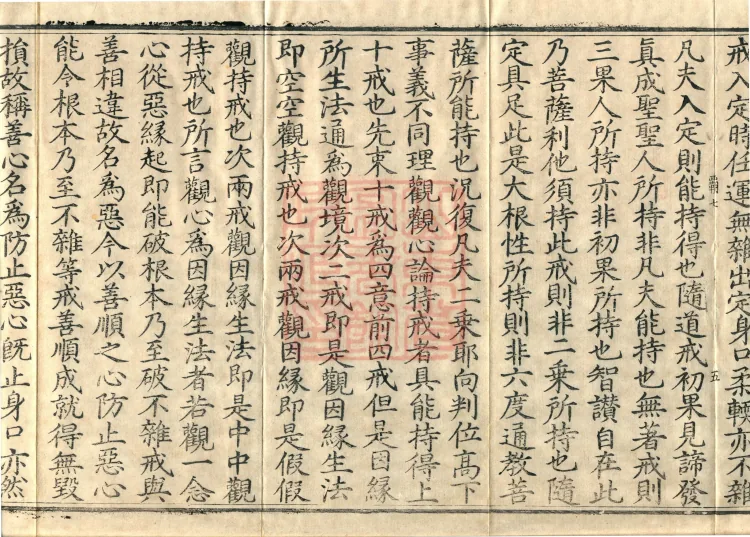 戒入定時任運無雜出定身口柔輭亦不雜
凡夫入定則能持得也隨道戒初果見諦發
眞成聖聖人所持非凡夫能持也無著戒則
三果人所持亦非初果所持也智讃自在此
乃菩薩利他須持此戒則非二乗所持也隨
定具足此是大根性所持則非六度通教菩
薩所能持也況復凡夫二乗耶向判位髙下
事義不同理觀觀心論持戒者具能持得上
十戒也先束十戒為四意前四戒但是因縁
所生法通為觀境次二戒即是觀因縁生法
即空空觀持戒也次兩戒觀因縁即是假假
觀持戒也次兩戒觀因縁生法即是中中觀
持戒也所言觀心為因縁生法者若觀一念
心從惡縁起即能破根本乃至破不雜戒與
善相違故名為惡今以善順之心防止惡心
能令根本乃至不雜等戒善順成就得無毀
損故稱善心名為防止惡心既止身口亦然
七
五